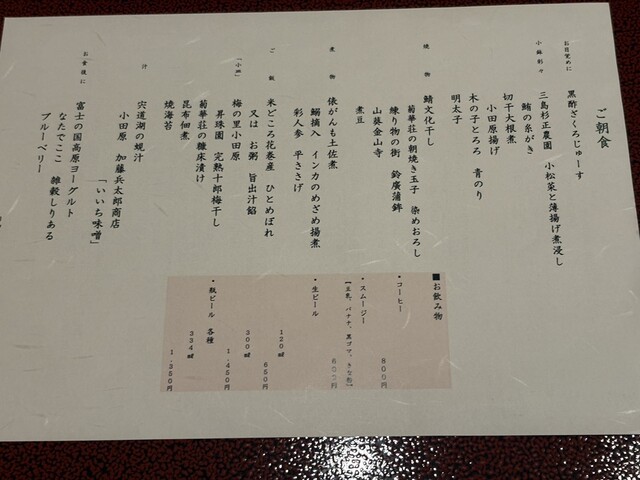 ご朝食
お目覚めに
黒酢ざくろじゅーす
小鉢彩々
三島杉正農園 小松菜と薄揚げ煮浸し
鮪の糸がき
切干大根煮
小田原揚げ
木の子とろろ 青のり
明太子
焼物
鯖文化干し
菊華荘の朝焼き玉子 染めおろし
練り物の街 鈴廣蒲鉾
山葵金山寺
煮豆
煮物
俵がんも土佐煮
鰯摘入 インカのめざめ揚煮
彩人参 平ささげ
ご飯
米どころ花巻産 ひとめぼれ
又は お粥 旨出汁餡
「小皿」
梅の里小田原
昇珠園 完熟十郎梅干し
菊華荘の糠床漬け
昆布佃煮
焼海苔
汁
宍道湖の蜆汁
小田原 加藤兵太郎商店
「いいち味噌」
お食後に
富士の国高原ヨーグルト
なたでここ 雑穀しりある
ブルーベリー
■お飲み物
・コーヒー
800円
・スムージー
【豆乳、バナナ、黒ゴマ、きな粉】
600円
・生ビール
120㎖ 650円
300㎖ 1,450円
・瓶ビール 各種
334㎖ 1,350円